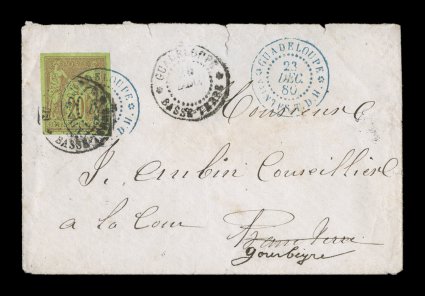 GUADELOUPE
BASSE-TERRE
GUADELOUPE
23
DEC.
80
D.H.
20
BASSE-TERRE
D.H.
Monsieur
J. Aubin Conseiller
a la Cour Basse Terre
Gourbeyre